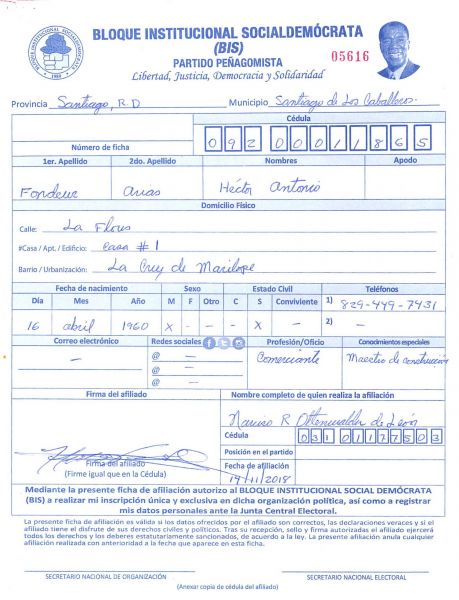 BLOQUE INSTITUCIONAL SOCIALDEMÓCRATA
(BIS)
PARTIDO PEÑAGOMISTA
05616
Libertad, Justicia, Democracia y Solidaridad
BLOQUE INSTITUCIONAL SOCIALDEMOCRATA
Provincia Santiago, R.D Municipio Santiago de Los Caballeros
Cédula
Número de ficha 092 0001186 5
1er. Apellido 2do. Apellido Nombres Apodo
Fondeur Arias Héctor Antonio
Domicilio Físico
Calle: La Flores
#Casa / Apt. / Edificio: Casa # 1
Barrio / Urbanización: La Cruz de Marilope
Fecha de nacimiento Sexo Estado Civil Teléfonos
Día Mes Año M F Otro C S Conviviente 1) 829-449-7431
16 abril 1960 X - - X - 2) -
Correo electrónico Redes sociales Profesión/Oficio Conocimientos especiales
@ Comerciante Maestro de construcción
@
@
Firma del afiliado Nombre completo de quien realiza la afiliación
Narciso R Ottenwalder de León
Cédula 031 0117750 3
Posición en el partido
Firma del afiliado Fecha de afiliación
(Firme igual que en la Cédula) 19/11/2018
Mediante la presente ficha de afiliación autorizo al BLOQUE INSTITUCIONAL SOCIAL DEMÓCRATA
(BIS) a realizar mi inscripción única y exclusiva en dicha organización política, así como a registrar
mis datos personales ante la Junta Central Electoral.
La presente ficha de afiliación es válida si los datos ofrecidos por el afiliado son correctos, las declaraciones veraces y si el
afiliado tiene el disfrute de sus derechos civiles y políticos. Tras su recepción, sello y firma autorizadas el afiliado ejercerá
todos los derechos y los deberes estatutariamente sancionados, de acuerdo a la ley. La presente afiliación anula cualquier
afiliación realizada con anterioridad a la fecha que aparece en esta ficha.
SECRETARIO NACIONAL DE ORGANIZACIÓN SECRETARIO NACIONAL ELECTORAL
(Anexar copia de cédula del afiliado)